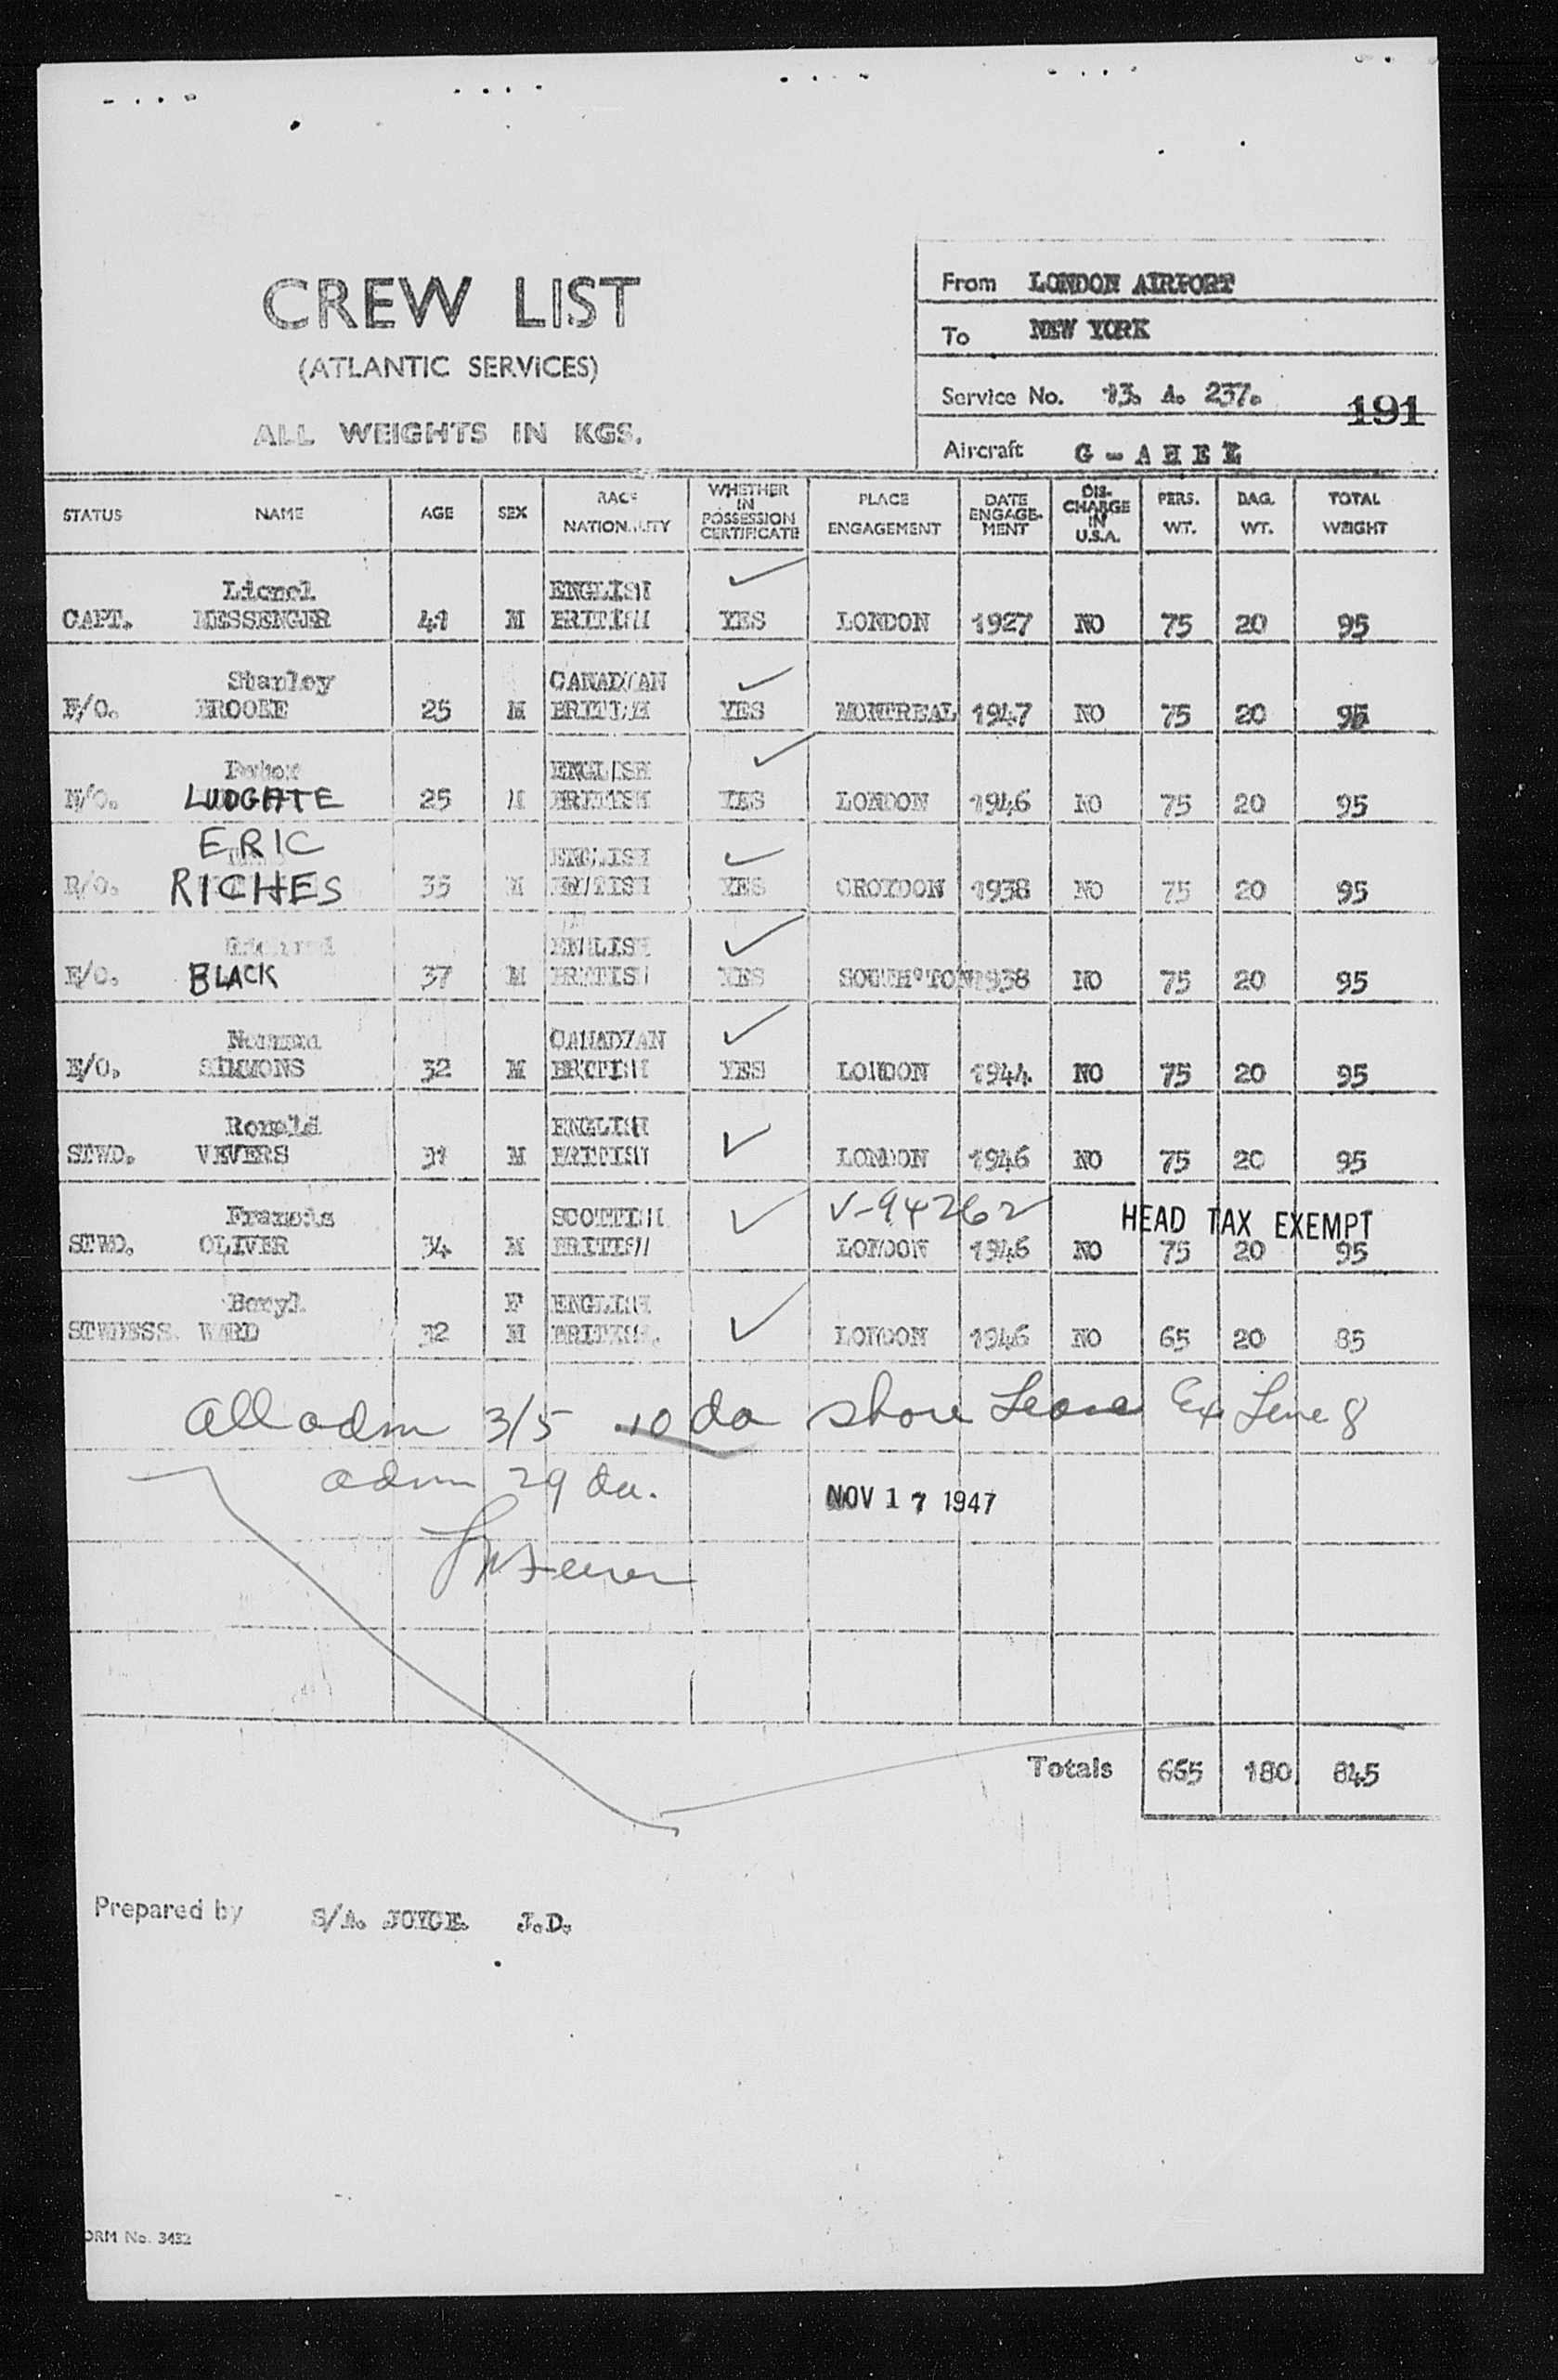 CREW LIST
(ATLANTIC SERVICES)
ALL WEIGHTS IN KGS.
From LONDON AIRPORT
To NEW YORK
Service No. 13. A. 237.
191
Aircraft G - A H E L
STATUS NAME AGE SEX RACE NATIONALITY WHETHER IN POSSESSION CERTIFICATE PLACE ENGAGEMENT DATE ENGAGE-MENT DIS-CHARGE IN U.S.A. PERS. WT. BAG. WT. TOTAL WEIGHT
Lionel ENGLISH
CAPT. MESSENGER 41 M BRITISH YES LONDON 1927 NO 75 20 95
Stanley CANADIAN
F/O. BROOKE 25 M BRITISH YES MONTREAL 1947 NO 75 20 95
ENGLISH
N/O. LUDGATE 25 M BRITISH YES LONDON 1946 NO 75 20 95
ERIC ENGLISH
R/O. RICHES 35 M BRITISH YES CROYDON 1938 NO 75 20 95
ENGLISH
E/O. BLACK 37 M BRITISH YES SOUTH'TON 1938 NO 75 20 95
Norman CANADIAN
E/O. SIMMONS 32 M BRITISH YES LONDON 1944 NO 75 20 95
Ronald ENGLISH
STWD. VEVERS 31 M BRITISH LONDON 1946 NO 75 20 95
Francis SCOTTISH V-94262 HEAD TAX EXEMPT
STWD. OLIVER 34 M BRITISH LONDON 1946 NO 75 20 95
Beryl F ENGLISH
STWDESS. WARD 32 M BRITISH. LONDON 1946 NO 65 20 85
All adm 3/5 10 da shore Leave Ex Line 8
adm 29 da.
NOV 17 1947
Totals 665 180 845
Prepared by S/A. JOYCE. J.D.
ORM No. 3432